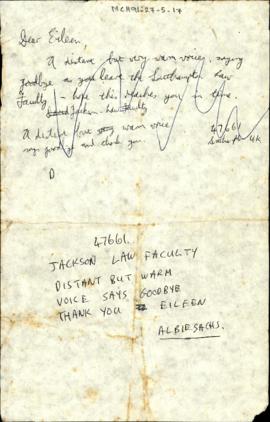 MCH91-27-5-17
Dear Eileen,
A distant but very warm voice, saying
goodbye as you leave the Southampton Law
Faculty - hope this reaches you in time.
Jackson Law Faculty
A distant but very warm voice
says goodbye and thank you.
47661
D
47661.
JACKSON LAW FACULTY
DISTANT BUT WARM
VOICE SAYS GOODBYE
THANK YOU EILEEN
ALBIE SACHS.